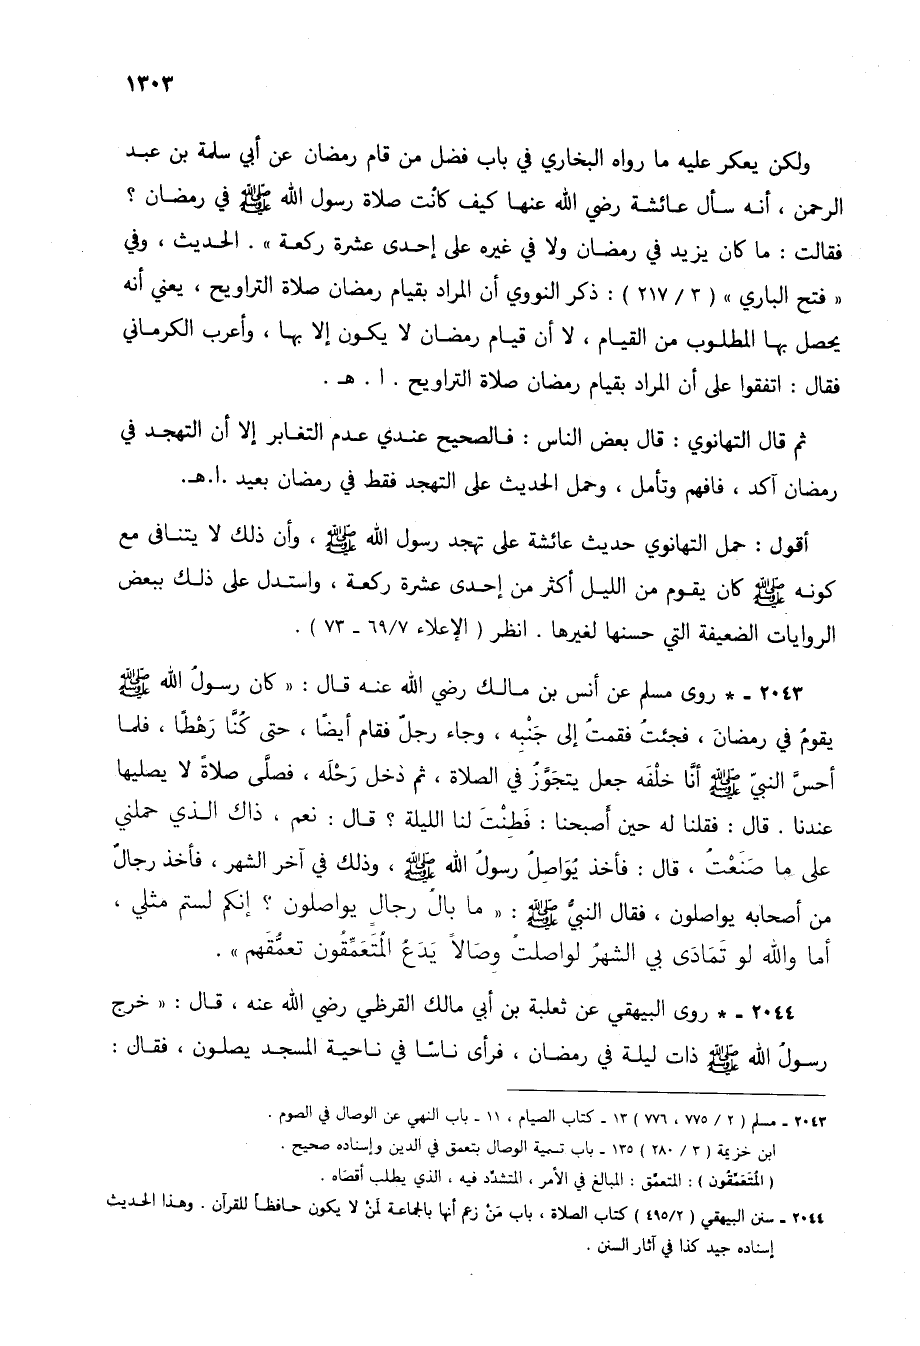 ١٣٠٣
ولكن يعكر عليه ما رواه البخاري في باب فضل من قام رمضان عن أبي سلمة بن عبد
الرحمن ، أنه سأل عائشة رضي الله عنها كيف كانت صلاة رسول الله ﷺ في رمضان ؟
فقالت : ما كان يزيد في رمضان ولا في غيره على إحدى عشرة ركعة » . الحديث ، وفي
« فتح الباري » ( ٣ / ٢١٧ ) : ذكر النووي أن المراد بقيام رمضان صلاة التراويح ، يعني أنه
يحصل بها المطلوب من القيام ، لا أن قيام رمضان لا يكون إلا بها ، وأعرب الكرماني
فقال : اتفقوا على أن المراد بقيام رمضان صلاة التراويح . ا . هـ .
ثم قال التهانوي : قال بعض الناس : فالصحيح عندي عدم التغابر إلا أن التهجد في
رمضان آكد ، فافهم وتأمل ، وحمل الحديث على التهجد فقط في رمضان بعيد .ا.هـ.
أقول : حمل التهانوي حديث عائشة على تهجد رسول الله ﷺ ، وأن ذلك لا يتنافى مع
كونه ﷺ كان يقوم من الليل أكثر من إحدى عشرة ركعة ، واستدل على ذلك ببعض
الروايات الضعيفة التي حسنها لغيرها . انظر ( الإعلاء ٦٩/٧ ـ ٧٣ ) .
٢٠٤٣ ـ * روى مسلم عن أنس بن مالك رضي الله عنه قال : « كان رسولُ الله ﷺ
يقومُ في رمضانَ ، فجئتُ فقمتُ إلى جَنْبِه ، وجاء رجلٌ فقام أيضًا ، حتى كُنَّا رَهْطًا ، فلما
أحسَّ النبيّ ﷺ أنَّا خلْفَه جعل يتجَوَّزُ في الصلاة ، ثم دخل رَحْلَه ، فصلَّى صلاةً لا يصليها
عندنا . قال : فقلنا له حين أصبحنا : فَطِنْتَ لنا الليلة ؟ قال : نعم ، ذاك الذي حملني
على ما صَنَعْتُ ، قال : فأخذ يُوَاصِلُ رسولُ الله ﷺ ، وذلك في آخر الشهر ، فأخذ رجالٌ
من أصحابه يواصلون ، فقال النبيُّ ﷺ : « ما بالُ رجالٍ يواصلون ؟ إنكم لستم مثلي ،
أما والله لو تَمَادَى بي الشهرُ لواصلتُ وصَالاً يَدَعُ المُتَعَمِّقُون تعمُّقَهم » .
٢٠٤٤ ـ * روى البيهقي عن ثعلبة بن أبي مالك القرظي رضي الله عنه ، قال : « خرج
رسولُ الله ﷺ ذات ليلة في رمضان ، فرأى ناسًا في ناحية المسجد يصلون ، فقال :
٢٠٤٣ ـ مسلم ( ٢ / ٧٧٥ ، ٧٧٦ ) ١٣ ـ كتاب الصيام ، ١١ ـ باب النهي عن الوصال في الصوم .
ابن خزيمة ( ٣ / ٢٨٠ ) ١٣٥ ـ باب تسمية الوصال بتعمق في الدين وإسناده صحيح .
( المُتَعَمِّقُون ) : المتعمّق : المبالغ في الأمر ، المتشدّد فيه ، الذي يطلب أقصَاه .
٢٠٤٤ ـ سنن البيهقي ( ٤٩٥/٢ ) كتاب الصلاة ، باب مَنْ زعم أنها بالجماعة لمَنْ لا يكون حافظاً للقرآن . وهذا الحديث
إسناده جيد كذا في آثار السنن .